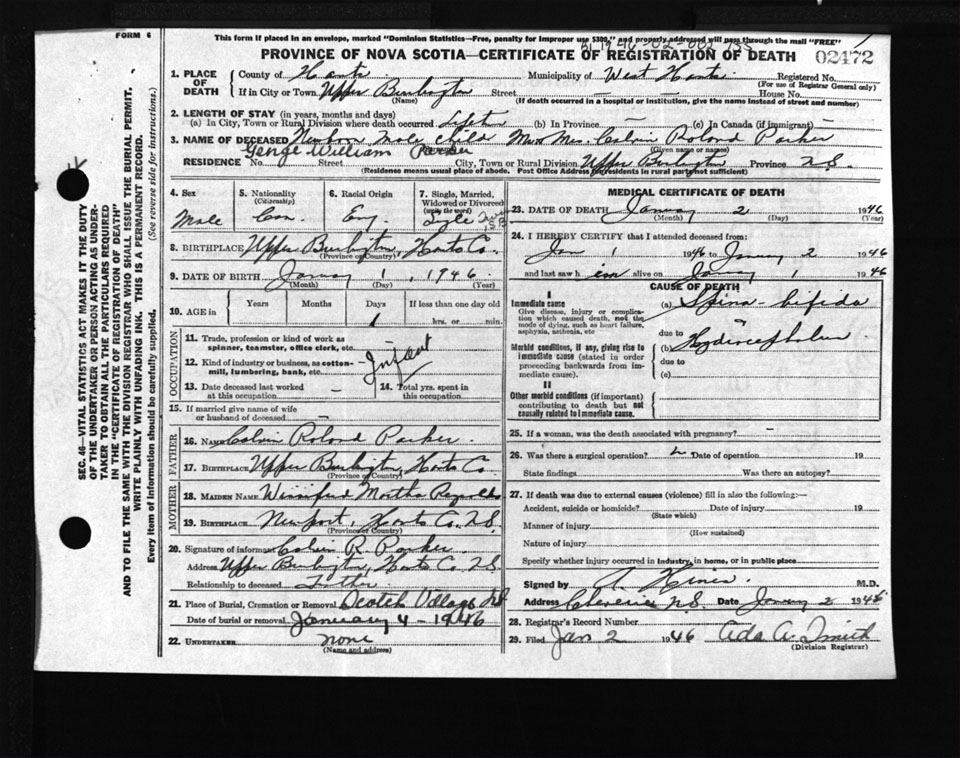 FORM 6
This form if placed in an envelope, marked "Dominion Statistics—Free, penalty for improper use $300," and properly addressed will pass through the mail "FREE"
PROVINCE OF NOVA SCOTIA—CERTIFICATE OF REGISTRATION OF DEATH
02472
1. PLACE OF DEATH County of Hants Municipality of West Hants Registered No.
(For use of Registrar General only)
If in City or Town Upper Burlington Street — House No. —
(Name) (If death occurred in a hospital or institution, give the name instead of street and number)
2. LENGTH OF STAY (in years, months and days)
(a) In City, Town or Rural Division where death occurred Lifetime (b) In Province — (c) In Canada (if immigrant) —
3. NAME OF DECEASED Newborn Male Child Mr & Mrs. Calvin Roland Parker
George William Parker (Given name or names)
RESIDENCE No. Street City, Town or Rural Division Upper Burlington Province N.S.
(Residence means usual place of abode. Post Office Address for residents in rural parts not sufficient)
4. Sex Male
5. Nationality (Citizenship) Can
6. Racial Origin Eng
7. Single, Married, Widowed or Divorced (write the word) Single
8. BIRTHPLACE Upper Burlington, Hants Co.
(Province or Country)
9. DATE OF BIRTH January 1, 1946
(Month) (Day) (Year)
10. AGE in Years Months Days 1 If less than one day old hrs. or min.
OCCUPATION
11. Trade, profession or kind of work as spinner, teamster, office clerk, etc. Infant
12. Kind of industry or business, as cotton-mill, lumbering, bank, etc.
13. Date deceased last worked at this occupation —
14. Total yrs. spent in this occupation
15. If married give name of wife or husband of deceased —
FATHER
16. NAME Calvin Roland Parker
17. BIRTHPLACE Upper Burlington, Hants Co
(Province or Country)
MOTHER
18. MAIDEN NAME Winnifred Martha Reynolds
19. BIRTHPLACE Newport, Hants Co. N.S.
(Province or Country)
20. Signature of informant Calvin R. Parker
Address Upper Burlington, Hants Co. N.S.
Relationship to deceased Father
21. Place of Burial, Cremation or Removal Scotch Village N.S.
Date of burial or removal January 4 - 1946
22. UNDERTAKER none
(Name and address)
MEDICAL CERTIFICATE OF DEATH
23. DATE OF DEATH January 2 1946
(Month) (Day)
24. I HEREBY CERTIFY that I attended deceased from:
Jan 1946 to January 2 1946
and last saw him alive on January 1 1946
CAUSE OF DEATH
I
Immediate cause (a) Spina-bifida
Give disease, injury or complication which caused death, not the mode of dying, such as heart failure, asphyxia, asthenia, etc
due to
Morbid conditions, if any, giving rise to immediate cause (stated in order proceeding backwards from immediate cause). (b) Hydrocephalus
due to
(c)
II
Other morbid conditions (if important) contributing to death but not causally related to immediate cause.
25. If a woman, was the death associated with pregnancy? —
26. Was there a surgical operation? Date of operation 19
State findings Was there an autopsy?
27. If death was due to external causes (violence) fill in also the following:—
Accident, suicide or homicide? Date of injury 19
(State which)
Manner of injury
(How sustained)
Nature of injury
Specify whether injury occurred in industry, in home, or in public place
Signed by A Hines M.D.
Address Cheverie N.S. Date January 2 1946
28. Registrar's Record Number
29. Filed Jan 2 1946 Ada A. Smith
(Division Registrar)
SEC. 46—VITAL STATISTICS ACT MAKES IT THE DUTY
OF THE UNDERTAKER OR PERSON ACTING AS UNDER-
TAKER TO OBTAIN ALL THE PARTICULARS REQUIRED
IN THE "CERTIFICATE OF REGISTRATION OF DEATH"
AND TO FILE THE SAME WITH THE DIVISION REGISTRAR WHO SHALL ISSUE THE BURIAL PERMIT.
WRITE PLAINLY WITH UNFADING INK. THIS IS A PERMANENT RECORD.
Every item of Information should be carefully supplied. (See reverse side for instructions.)